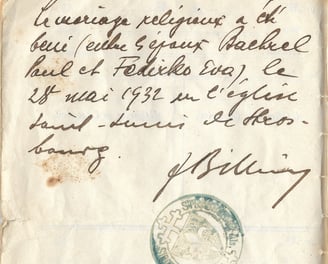 Le mariage religieux a été
béni (entre époux Bachrel
Paul et Fedirko Eva) le
28 mai 1932 en l'église
Saint- de Stras-
bourg.